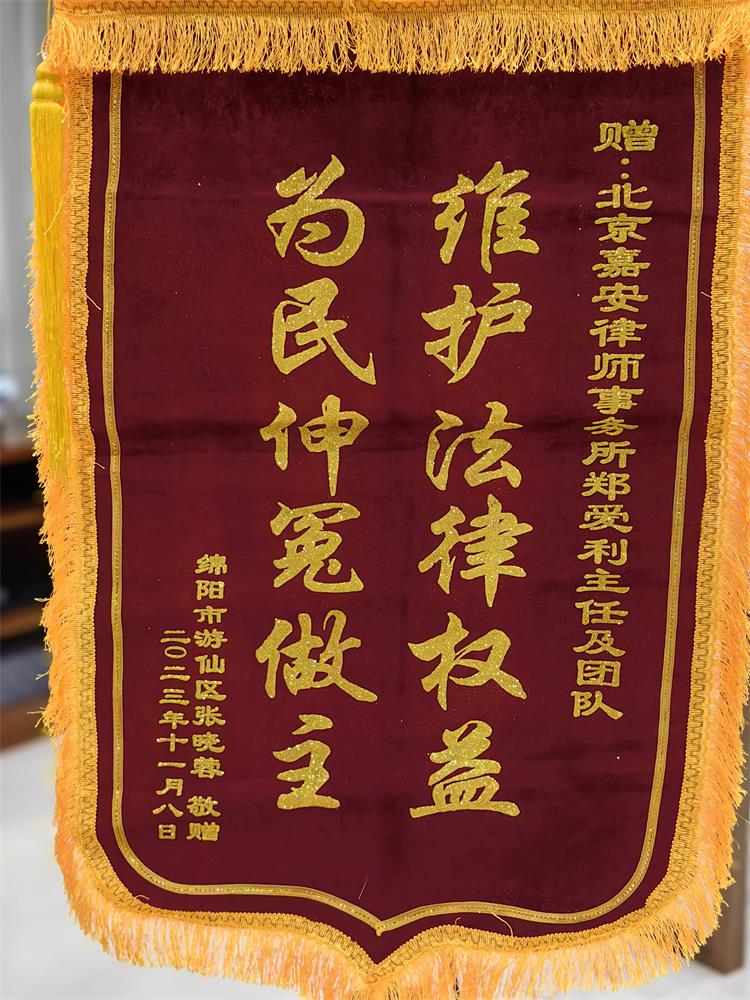 赠：北京嘉安律师事务所郑受利主任及团队
维护法律权益
为民伸冤做主
绵阳市游仙区张晓蓉 敬赠
二〇二三年十一月八日